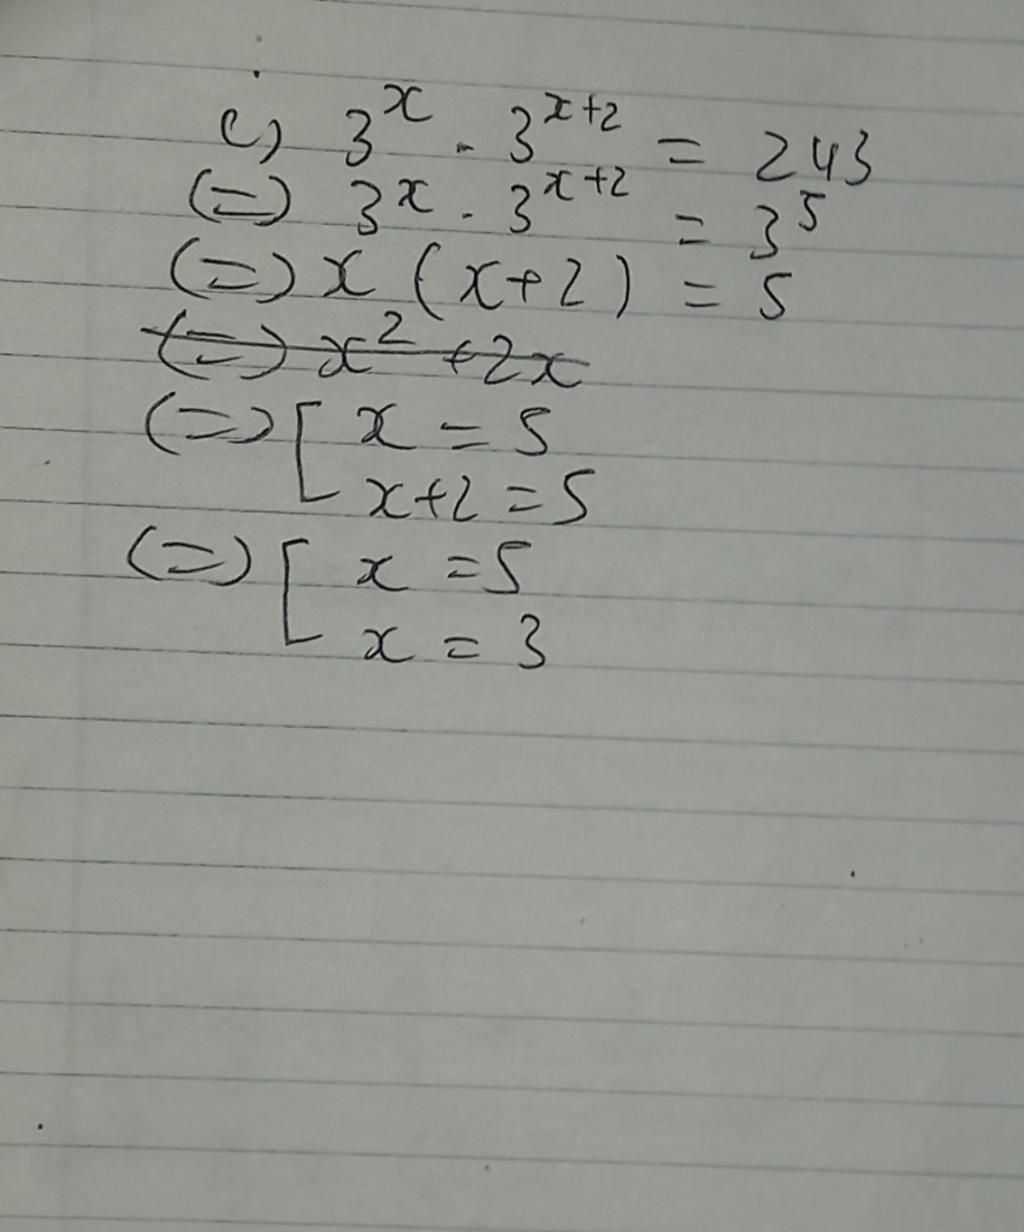 c) 3^x . 3^{x+2} = 243
(=) 3^x . 3^{x+2} = 3^5
(=) x (x+2) = 5
(=) x^2 + 2x
(=) [ x = 5
x+2 = 5
(=) [ x = 5
x = 3